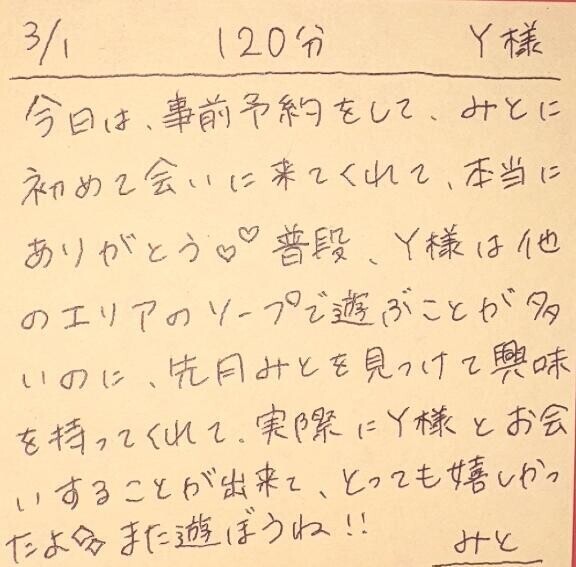 3/1 120分 Y様
今日は、事前予約をして、みとに
初めて会いに来てくれて、本当に
ありがとう♡♡普段、Y様は他
のエリアのソープで遊ぶことが多
いのに、先月みとを見つけて興味
を持ってくれて、実際にY様とお会
いすることが出来て、とっても嬉しかっ
たよ また遊ぼうね!!
みと